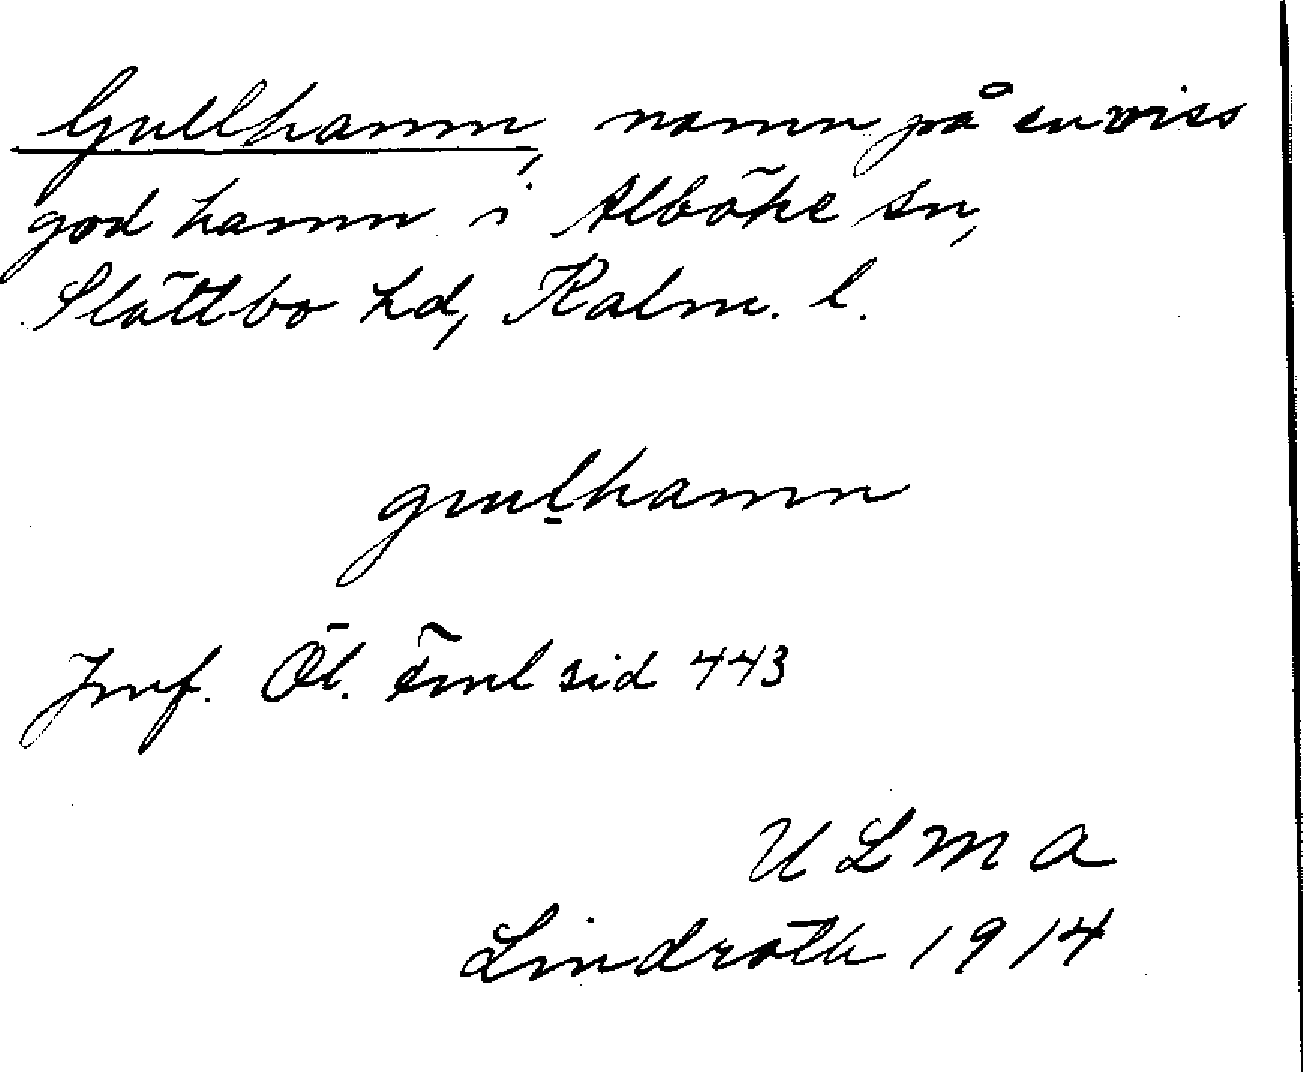 Gullhamn, namn på en viss
god hamn i Alböke sn,
Slättbo hd, Kalm. l.
guḻhamn
Jmf. Öl. Fml sid 443
U L M A
Lindroth 1914